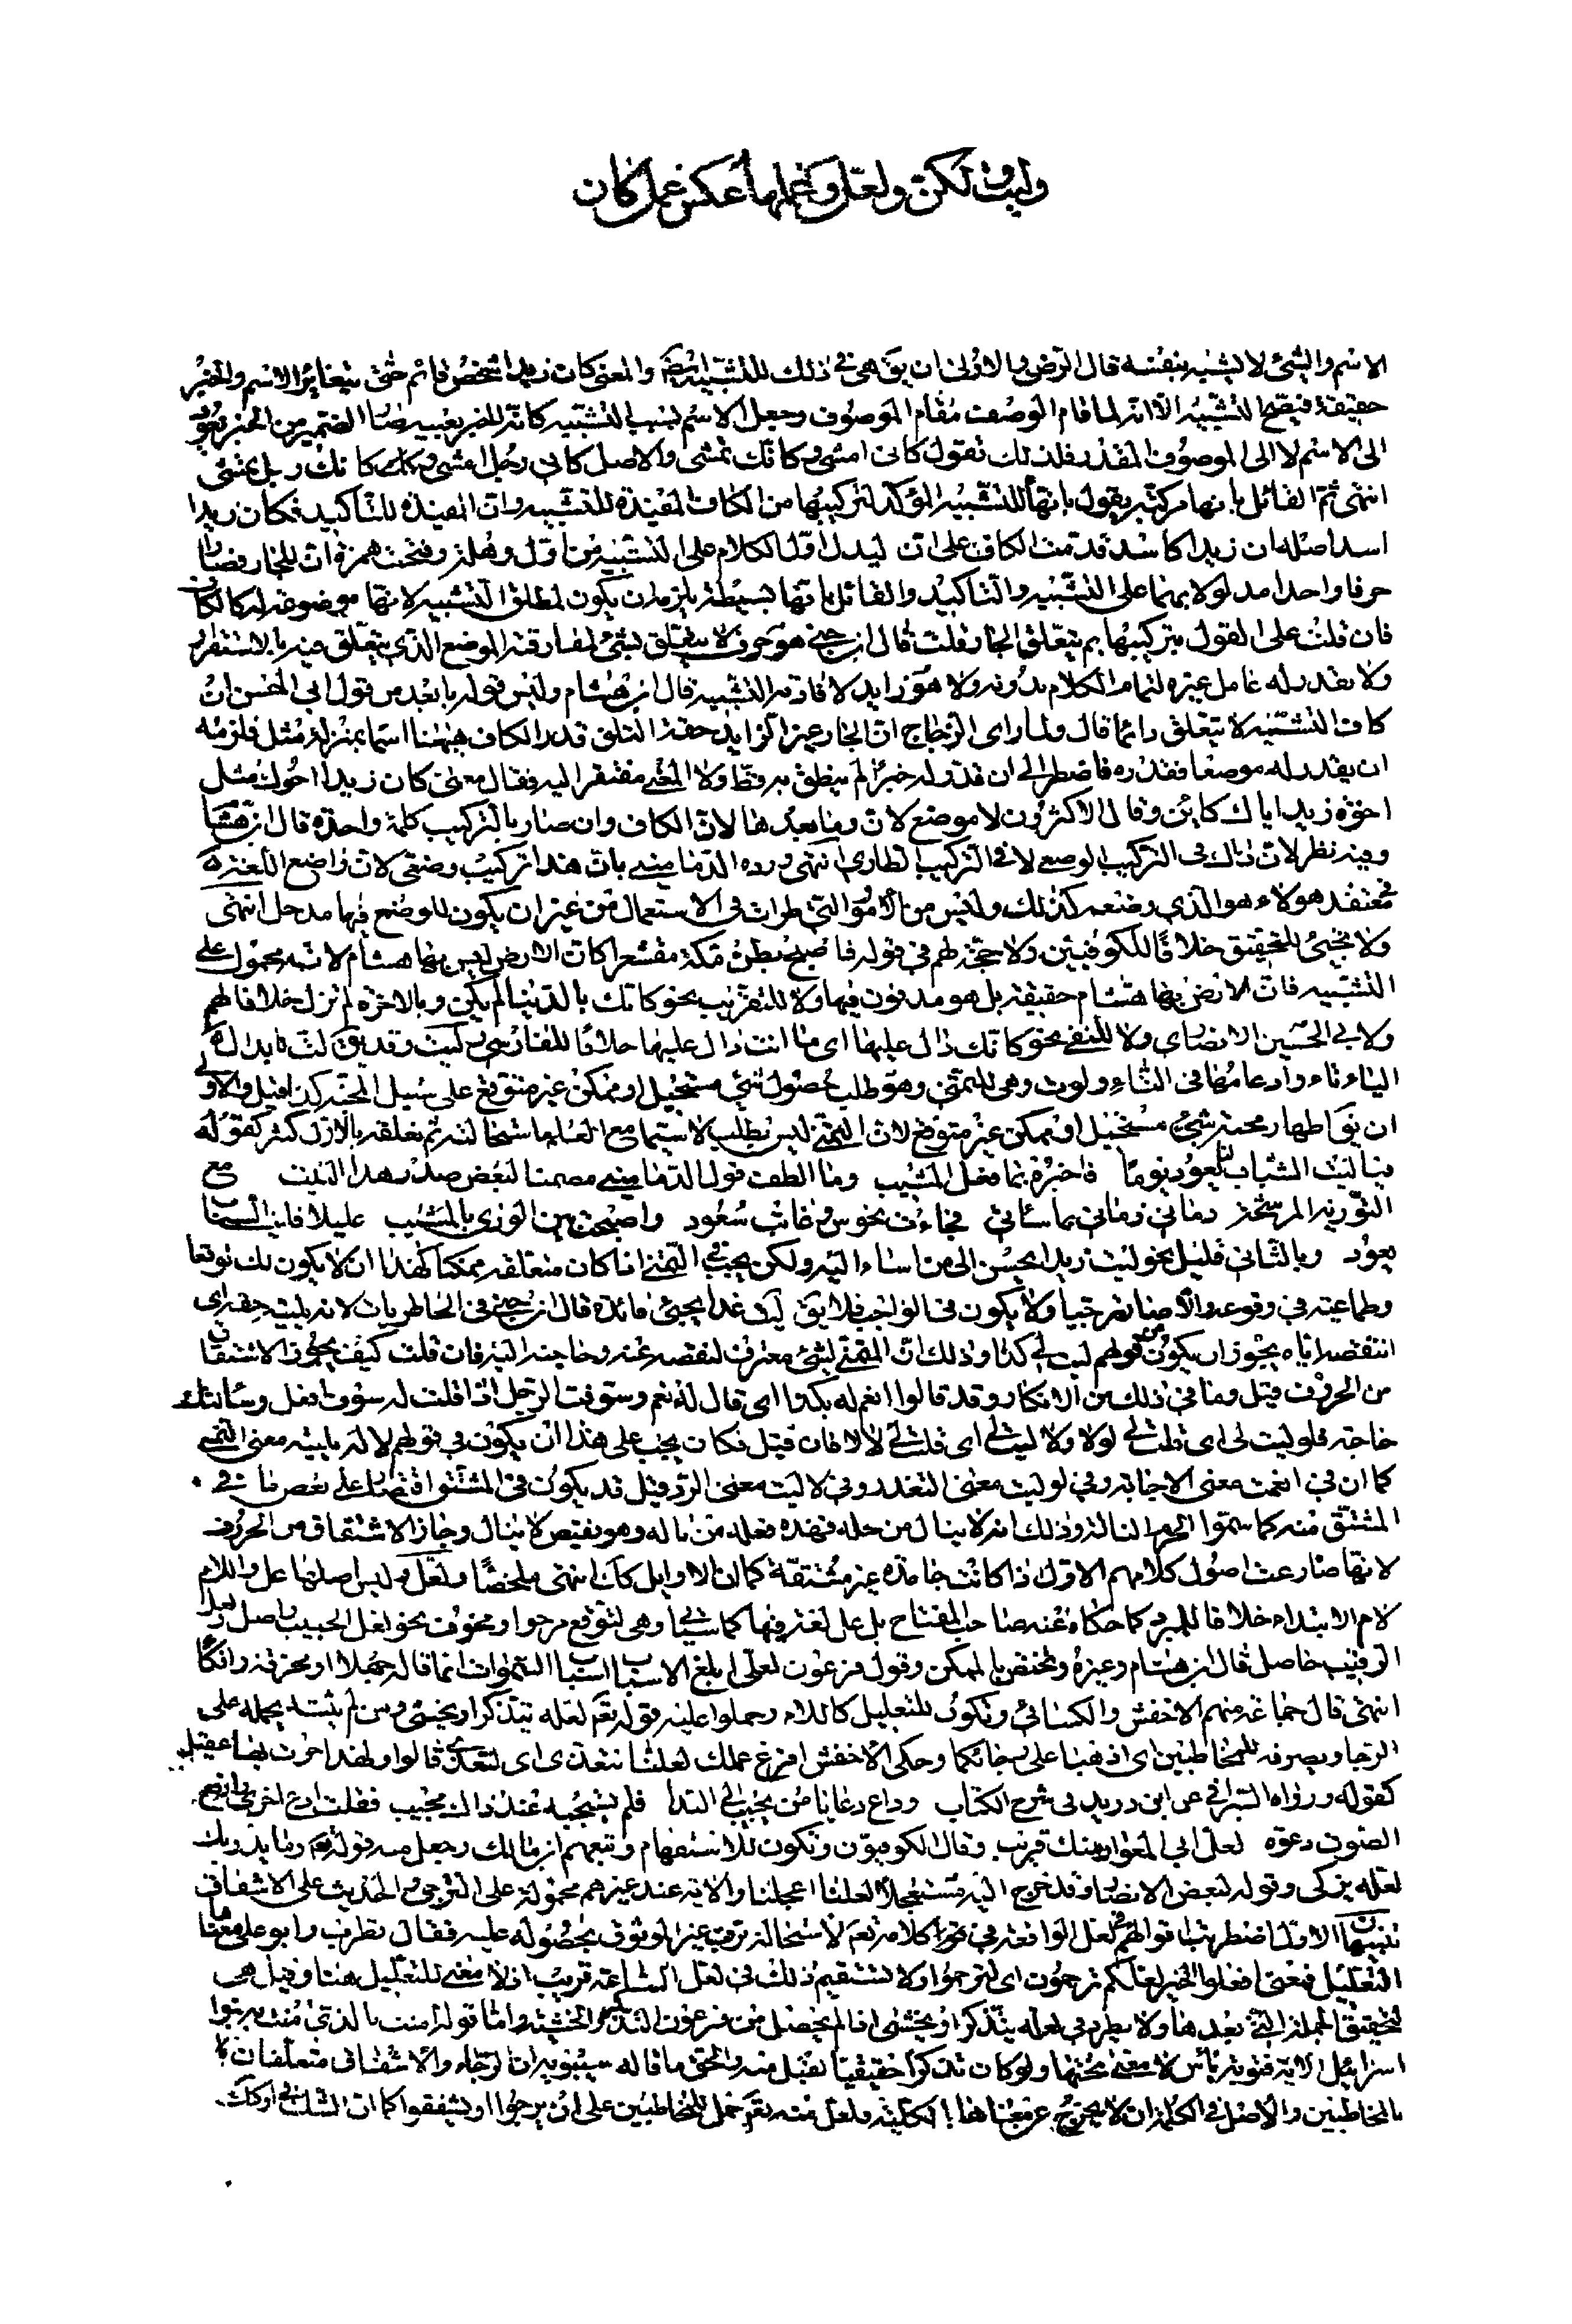 وليت ولكن ولعل وعملها عكس عمل كان
الاسم والشئ لا يشبه بنفسه قال الرضى والاولى ان يق هى فى ذلك للتشبيه ايضا والمعنى كان زيدا شخص قائم حتى يتغاير الاسم والخبر
حقيقة فيصح التشبيه الا انه لما قام الوصف مقام الموصوف وجعل الاسم بسبب التشبيه كانه الخبر بعينه صار الضمير من الخبر يعود
الى الاسم لا الى الموصوف المقدر فلذلك تقول كانى امشى وكانك تمشى والاصل كانى رجل امشى وكانك رجل يمشى
انتهى ثم القائل بانها مركبة يقول بانها للتشبيه المؤكد لتركيبها من الكاف المفيدة للتشبيه وان المفيدة للتاكيد فكان زيدا
اسد اصله ان زيدا كاسد قدمت الكاف على ان ليدل اول الكلام على التشبيه من اول وهلة وفتحت همزة ان للجار فصارا
حرفا واحدا مدلولا بهما على التشبيه والتاكيد والقائل بانها بسيطة يلزمه ان يكون لمطلق التشبيه لانها موضوعة له كالكاف
فان قلت على القول بتركيبها بم يتعلق الجار قلت قال ابن جنى هو حرف لا يتعلق بشئ لمفارقته الموضع الذى يتعلق فيه بالاستقرار
ولا يقدر له عامل غيره لتمام الكلام بدونه ولا هو زايد لافادته التشبيه قال ابن هشام وليس قوله بابعد من قول ابى الحسن ان
كاف التشبيه لا يتعلق دائما قال ولما راى الزجاج ان الجار غير الزايد حقه التعلق قدر الكاف ههنا اسما بمنزلة مثل فلزمه
ان يقدر له موضعا فقدره فاضطر الى ان قدر له خبرا لم ينطق به قط ولا المعنى مفتقر اليه فقال معنى كان زيدا اخوك مثل
اخوة زيد اياك كاين وقال الاكثرون لا موضع لان وما بعدها لان الكاف وان صار بالتركيب كلمة واحدة قال ابن هشام
وفيه نظر لان ذاك فى التركيب الوضعى لا فى التركيب الطارى انتهى ورده الدمامينى بان هذا تركيب وضعى لان واضع اللغة
فى معتقد هولاء هو الذى وضعه كذلك وليس من الامور التى طرات فى الاستعمال من غير ان يكون للوضع فيها مدخل انتهى
ولا تجئ للتحقيق خلافا للكوفيين ولا حجة لهم فى قوله فاصبح بطن مكة مقشعرا كان الارض ليس بها هشام لانه محمول على
التشبيه فان الارض بها هشام حقيقة بل هو مدفون فيها ولا للتقريب نحو كانك بالدنيا لم يكن وبالاخرة لم تزل خلافا لهم
ولابى الحسين الانصارى ولا للنفى نحو كانك دال عليها اى ما انت دال عليها خلافا للفارسى وليت وقد يق لت بابدال
الياء تاء وادغامها فى التاء ولوت وهى للتمنى وهو طلب حصول شئ مستحيل او ممكن غير متوقع على سبيل المحبة كذا قيل والاولى
ان يق اظهار محبة شئ مستحيل او ممكن غير متوقع لان التمنى ليس بطلب لا سيما مع العلم باستحالته ثم تعلقه بالاول كثير كقوله
فيا ليت الشباب لنا يعود يوما فاخبره بما فعل المشيب وما الطف قول الدمامينى مضمنا لبعض صدر هذا البيت مع
التورية المرشحة رمانى زمانى بما ساءنى فجاءت نحوس وغابت سعود واصبحت بين الورى بالمشيب عليلا فليت الشباب
يعود وبالثانى قليل نحو ليت زيدا يحسن الى من اساء اليه ولكن يجب فى التمنى اذا كان متعلقه ممكنا كهذا ان لا يكون لك توقع
وطماعية فى وقوعه والا صار ترجيا ولا يكون فى الواجب فلا يق ليت غدا يجئ فائدة قال ابن جنى فى الخاطريات لاته يليته حقه اى
انتقصه اياه يجوز ان يكون من قولهم ليت لى كذا وذلك ان المتمنى لشئ معترف لنقصه عنه وحاجته اليه فان قلت كيف يجوز الاشتقاق
من الحروف قيل وما فى ذلك من الانكار وقد قالوا انعم له بكذا اى قال له نعم وسوفت الرجل اذا قلت له سوف افعل وسالتك
حاجة فلوليت لى اى قلت لى لولا ولا ليت لى اى قلت لى لا لا فان قيل فكان يجب على هذا ان يكون فى قولهم لاته يليته معنى التمنى
كما ان فى انعمت معنى الاجابة وفى لوليت معنى التعذر وفى لا ليت معنى الرد قيل قد يكون فى المشتق اقتصار على بعض ما فى
المشتق منه كما سموا الحرم النالة وذلك انه لا ينال من حله فهذه فعلة من نال له وهو بعض لا ينال وجاز الاشتقاق من الحروف
لانها ضارعت اصول كلامهم الاول اذا كانت جامدة غير مشتقة كما ان الاوايل كك انتهى ملخصا ولعل وليس اصلها عل واللام
لام الابتداء خلافا للمبرد كما حكاه عنه صاحب المفتاح بل عل لغة فيها كما سياتى وهى لتوقع مرجو او مخوف نحو لعل الحبيب واصل ولعل
الرقيب حاصل قال ابن هشام وغيره وتختص بالممكن وقول فرعون لعلى ابلغ الاسباب اسباب السموات انما قاله جهلا او مخرقة وافكا
انتهى قال جماعة منهم الاخفش والكسائى وتكون للتعليل كاللام وحملوا عليه قوله تعم لعله يتذكر او يخشى ومن لم يثبته يحمله على
الرجا ويصرفه للمخاطبين اى اذهبا على رجائكما وحكى الاخفش افرغ عملك لعلنا نتغدى اى لنتغدى قالوا ولهذا اخرت بها عقيل
كقوله ورواه السيرافى عن ابن دريد فى شرح الكتاب وداع دعا يا من يجيب الى الندا فلم يستجبه عند ذاك مجيب فقلت ادع اخرى وارفع
الصوت دعوة لعل ابى المغوار منك قريب وقال الكوفيون وتكون للاستفهام وتبعهم ابن مالك وجعل منه قوله تعم وما يدريك
لعله يزكى وقوله لبعض الانصار وقد خرج اليه مستعجلا لعلنا اعجلناك والاية عند غيرهم محمولة على الترجى والحديث على الاشفاق
تنبيهان الاول اضطربت اقوالهم فى لعل الواقعة فى كلامه تعم لاستحالة ترقب غير الموثوق بحصوله عليه فقال قطرب وابو على معناها
التعليل فمعنى افعلوا الخير لعلكم ترحمون اى لترحموا ولا يستقيم ذلك فى لعل الساعة قريب اذ لا معنى للتعليل هنا وقيل هى
لتحقيق الجملة التى بعدها ولا يطرد فى لعله يتذكر او يخشى اذ لم يحصل من فرعون التذكر والخشية واما قوله امنت بالذى امنت به بنوا
اسرائيل الاية فتوبة يأس لا معنى تحتها ولو كان تذكرا حقيقيا لقبل منه والحق ما قاله سيبويه ان الرجاء والاشفاق متعلقان
بالمخاطبين والاصل فى الكلمة ان لا يخرج عن معناها بالكلية ولعل منه تعم حمل للمخاطبين على ان يرجوا او يشفقوا كما ان الشك فى او كك